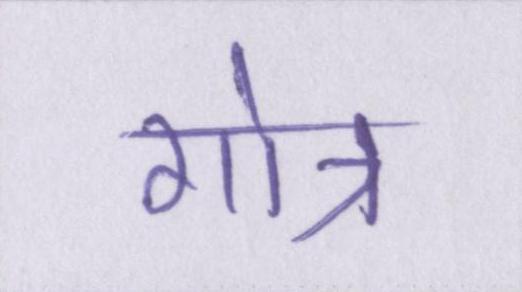 गोत्र